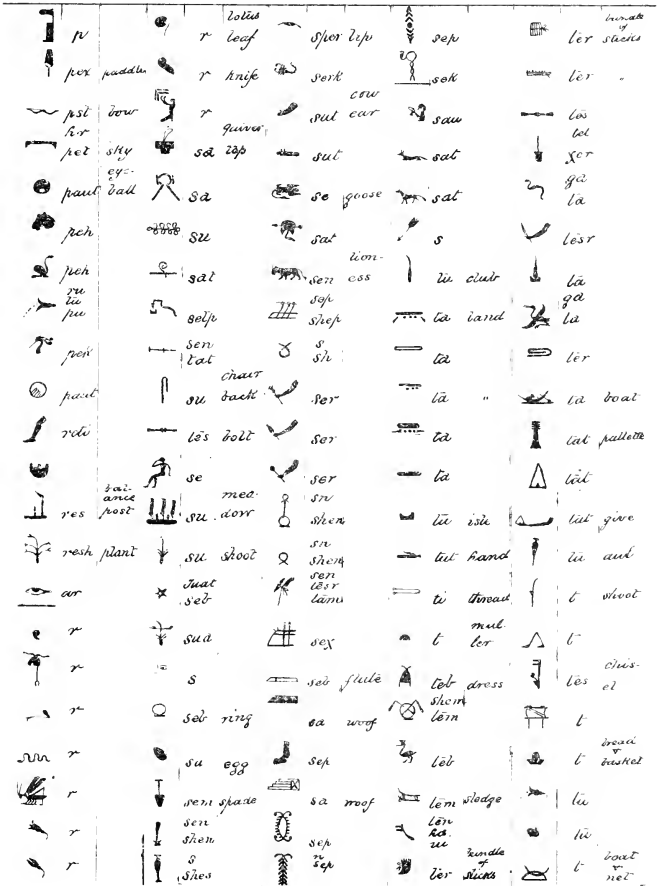 p
pex paddles
pst bow
hr
pet sky
eye-
paut ball
peh
peh
ru
tu
pu
pek
paut
rdu
bal-
ance
res post
resh plant
ar
r
r
r
r
r
r
r
lotus
r leaf
r knife
r
quiver
sa top
sa
su
sat
setp
sen
tat
chair
su back
tēs bolt
se
mea-
su dow
su shoot
Tuat
seb
sua
s
seb ring
su egg
sem spade
sen
shen
s
shes
sper lip
serk
cow
sut ear
sut
se goose
sat
lion-
sen ess
sep
shep
s
sh
ser
ser
ser
sn
shen
sn
shem
sen
tēsr
tām
sex
seb flute
sa woof
sep
sa woof
sep
n
sep
sep
sek
sau
sat
sat
s
tū club
ta land
ta
tā "
ta
ta
tū isu
tut hand
ti thread
mul-
t ler
teb dress
shem
tēm
tēb
tēm sledge
tēn
ha
ui
bundle
of
tēr sticks
bundle
of
tēr sticks
tēr "
tēs
tet
xer
ga
tā
tēsr
tā
ga
ta
tēr
ta boat
tat pallette
tāt
tat give
tū aul
t shoot
t
chis-
tēs el
t
bread
&
t basket
tū
tū
boat
&
t net